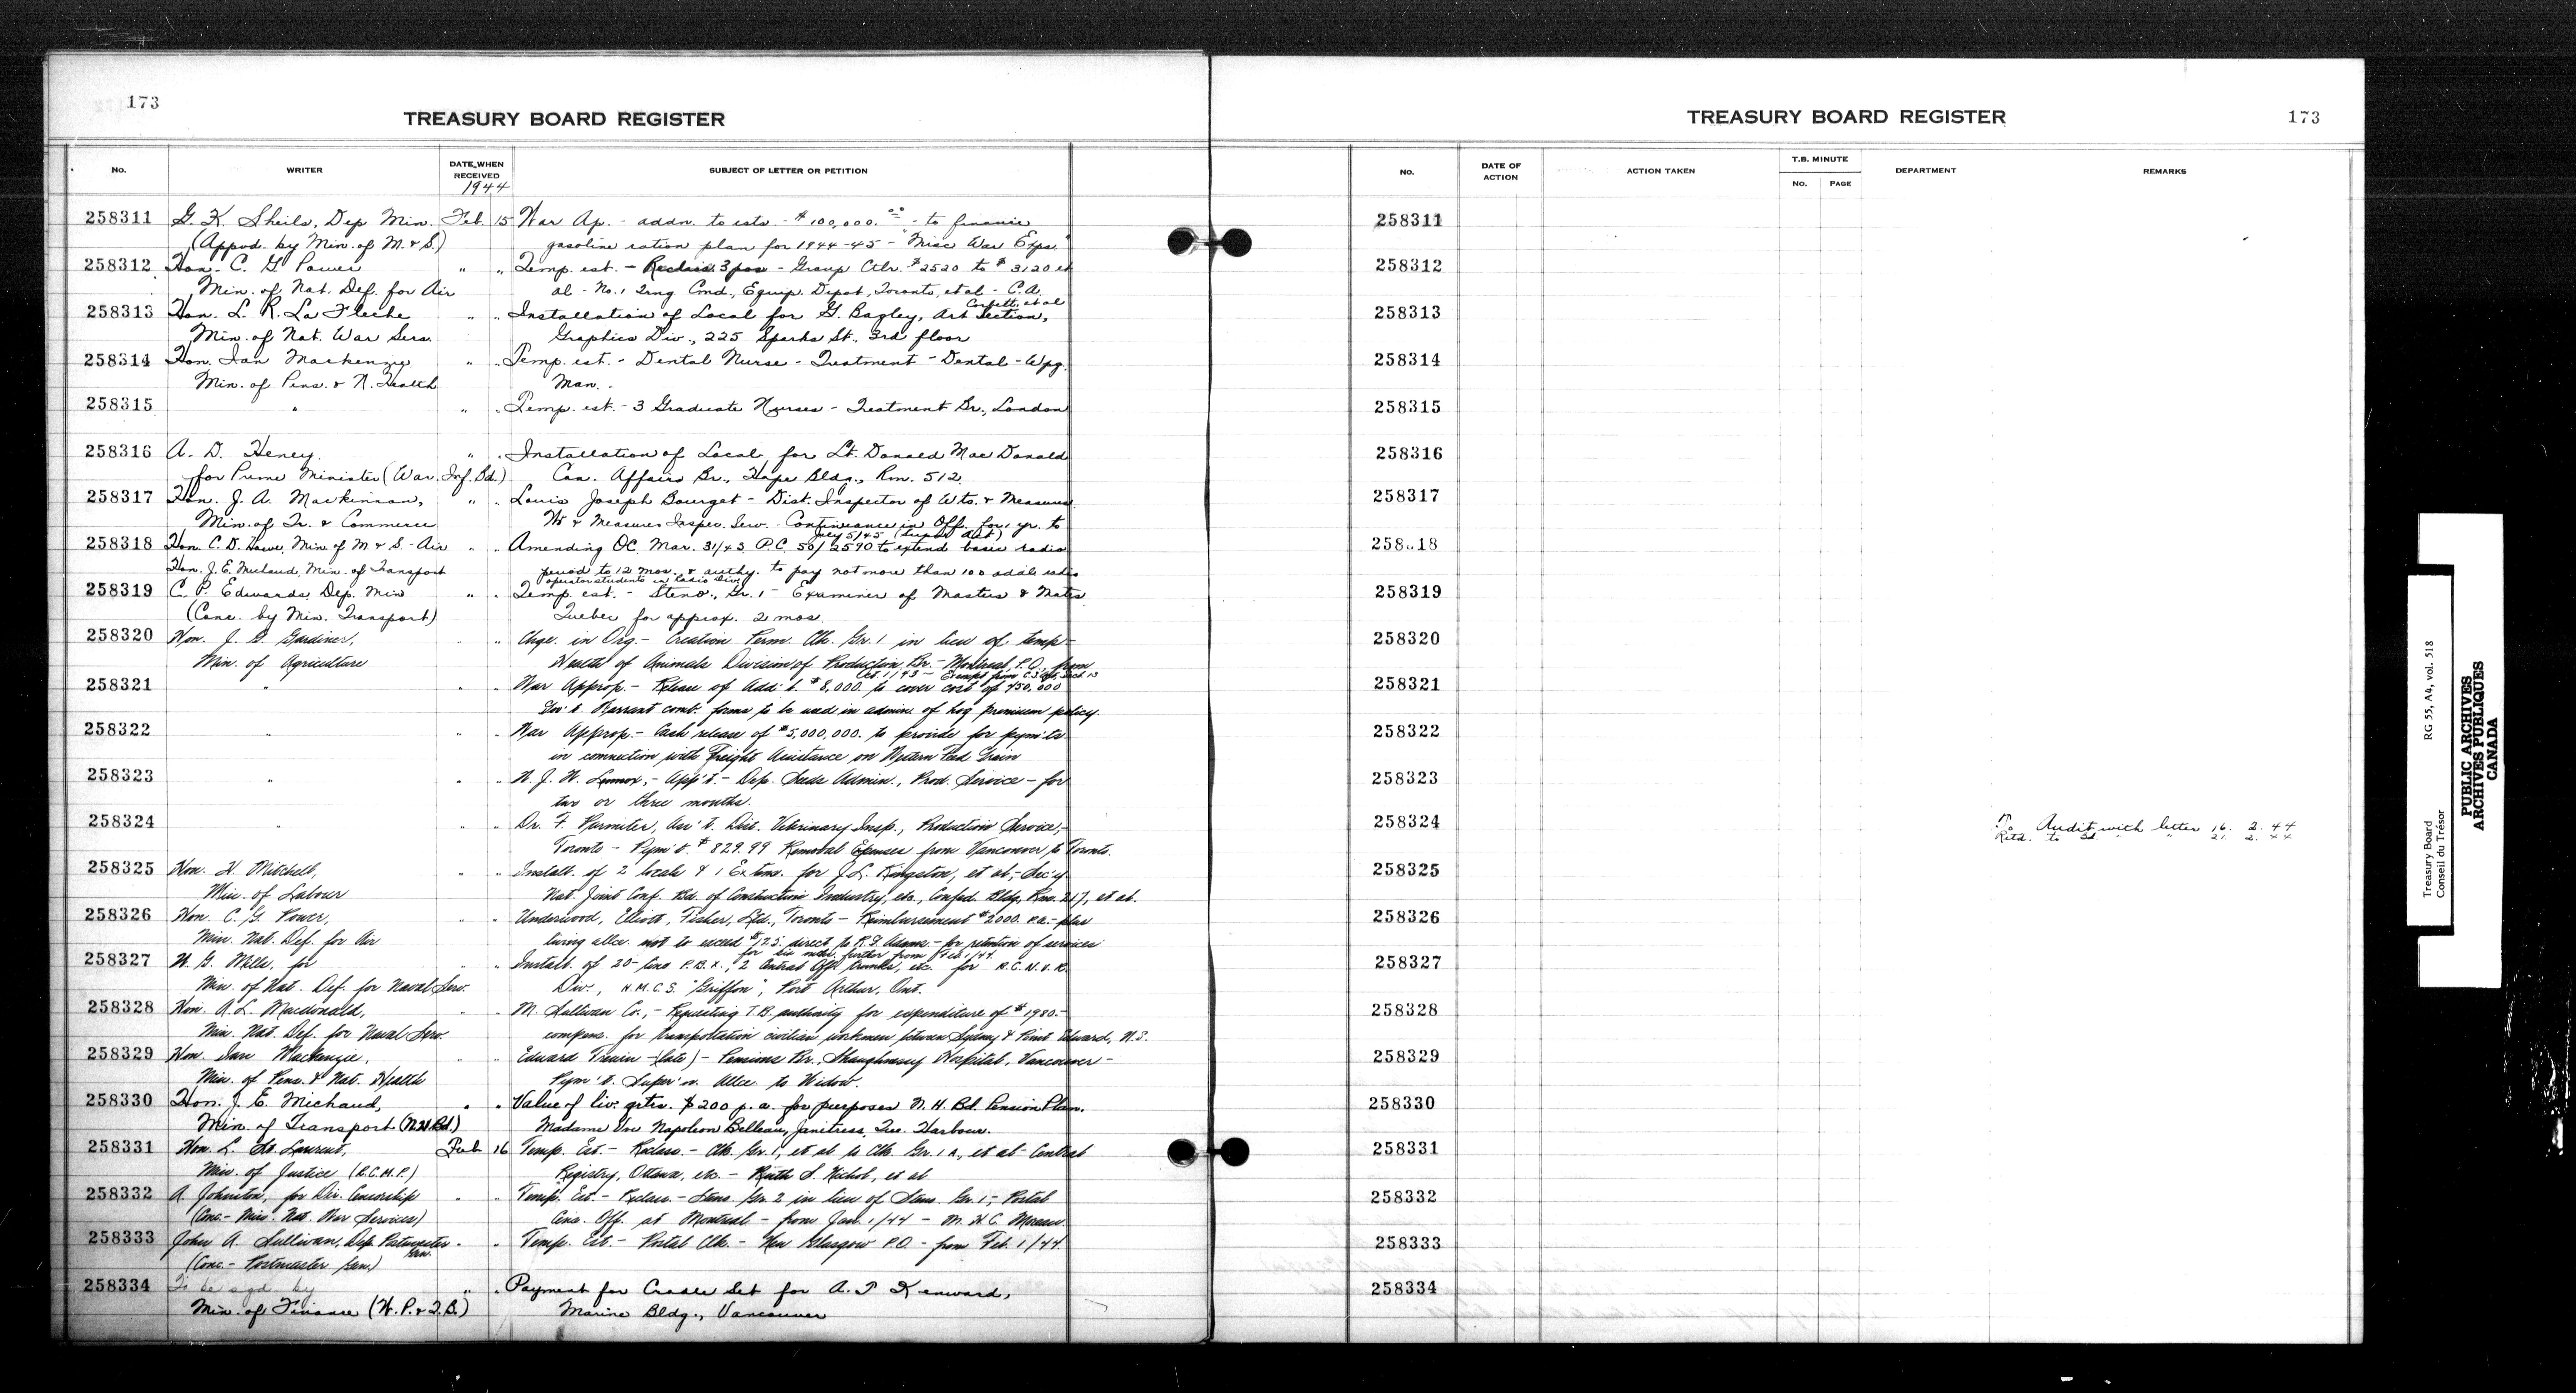 173
TREASURY BOARD REGISTER
No.
WRITER
DATE WHEN RECEIVED
1944
SUBJECT OF LETTER OR PETITION
258311 G. K. Sheils, Dep Min. Feb. 15 War Ap. - addn. to ests. - $100,000.00 - to finance
(Appvd. by Min. of M. & S.) gasoline ration plan for 1944-45 - "Misc War Exps."
258312 Hon. C. G. Power " " Temp. est. - Reclass. 3 pos - Group Ctlr. $2520 to $3120 et
Min. of Nat. Def. for Air al - No. 1 Trng Cmd., Equip. Depot, Toronto, et al - C.A.
258313 Hon. L. R. La Fleche " " Installation of Local for G. Bagley, Art Section, Corbett, et al
Min. of Nat. War Sers. Graphics Div., 225 Sparks St., 3rd floor
258314 Hon. Ian Mackenzie " " Temp. est. - Dental Nurse - Treatment - Dental - Wpg.
Min. of Pens. & N. Health Man.
258315 " " " Temp. est. - 3 Graduate Nurses - Treatment Br., London
258316 A. D. Heney " " Installation of Local for Lt. Donald MacDonald
for Prime Minister (War. Inf. Bd.) Can. Affairs Br., Hope Bldg., Rm. 512
258317 Hon. J. A. MacKinnon, " " Louis Joseph Bourget - Dist. Inspector of Wts. & Measures
Min. of Tr. & Commerce Wts & Measures Inspec. Serv. - Continuance in Off. for 1 yr. to
July 5/45 (Super Act)
258318 Hon. C. D. Howe, Min. of M & S - Air " " Amending OC. Mar. 31/43 P.C. 50/2590 to extend basic radio
Hon. J. E. Michaud, Min. of Transport period to 12 mos. & authy. to pay not more than 100 addl. radio
operator students in Radio Div.
258319 C. P. Edwards, Dep. Min " " Temp. est. - Steno., Gr. 1 - Examiner of Masters & Mates
(Conc. by Min. Transport) Quebec for approx. 2 mos.
258320 Hon. J. G. Gardiner, " " Chge. in Org. - Creation Perm. Clk. Gr. 1 in lieu of temp -
Min. of Agriculture Health of Animals Division of Production Br. - Montreal, P.Q., from
Oct. 1/43 - Exempt from C.S. Act, Sect. 13
258321 " " " War Approp. - Release of Add'l. $8,000. to cover cost of 450,000
Gov't. Warrant comb. forms to be used in admin. of hog premium policy.
258322 " " " War Approp. - Cash release of $5,000,000. to provide for pym'ts
in connection with Freight Assistance on Western Feed Grain
258323 " " " W. J. W. Lennox, - App't. - Dep. Seeds Admin., Prod. Service - for
two or three months.
258324 " " " Dr. F. Parmiter, Ass't. Dist. Veterinary Insp., Production Service, -
Toronto - Pym't. $829.99 Removal Expenses from Vancouver to Toronto.
258325 Hon. H. Mitchell, " " Install. of 2 locals & 1 Extens. for J. L. Kingston, et al, - Sec'y
Min. of Labour Nat. Joint Conf. Bd. of Construction Industry, etc., Confed. Bldg., Rm. 217, et al.
258326 Hon. C. G. Power, " " Underwood, Elliott, Fisher, Ltd., Toronto - Reimbursement $2000. p.a. - plus
Min. Nat. Def. for Air living allce. not to exceed $125. direct to R. G. Adams. - for retention of services
for six mths. further from Feb. 1/44.
258327 W. G. Mills, for " " Install. of 20-line P.B.X., 2 Central Off. trunks, etc. for R.C.N.V.R.
Min. of Nat. Def. for Naval Serv. Div., H.M.C.S. "Griffon", Port Arthur, Ont.
258328 Hon. A. L. Macdonald, " " M. Sullivan Co., - Requesting T.B. authority for expenditure of $1980. -
Min. Nat. Def. for Naval Serv. compens. for transportation civilian workmen between Sydney & Point Edward, N.S.
258329 Hon. Ian Mackenzie, " " Edward (late) - Pensions Br. Shaughnessy Hospital, Vancouver -
Min. of Pens. & Nat. Health Pym't. Super'n. Allce. to Widow.
258330 Hon. J. E. Michaud, " " Value of liv. qrtrs. $200 p.a. for purposes N. H. Bd. Pension Plan.
Min. of Transport (N.H.Bd.) Madame Vve Napoleon Belleau, Janitress, Que. Harbour.
258331 Hon. L. St. Laurent, Feb 16 Temp. Est. - Reclass. - Clk. Gr. 1, et al to Clk. Gr. 1A, et al - Central
Min. of Justice (R.C.M.P.) Registry, Ottawa, etc. - Ruth S. Nichol, et al
258332 A. Johnston, for Dir. Censorship " " Temp. Est. - Reclass. - Steno. Gr. 2 in lieu of Steno. Gr. 1, - Postal
(Conc. - Min. Nat. War Services) Cens. Off. at Montreal - from Jan. 1/44 - M. H. C. Moreau.
258333 John A. Sullivan, Dep. Postmaster Gen. " " Temp. Est. - Postal Clk. - New Glasgow P.O. - from Feb. 1/44
(Conc. - Postmaster Gen.)
258334 To be sgd by " " Payment for Cradle Set for A. T. Kenward,
Min. of Finance (W.P. & T.B.) Marine Bldg., Vancouver
TREASURY BOARD REGISTER
173
No.
DATE OF ACTION
ACTION TAKEN
T.B. MINUTE
NO. PAGE
DEPARTMENT
REMARKS
258311
258312
258313
258314
258315
258316
258317
258318
258319
258320
258321
258322
258323
258324 To Audit with letter 16. 2. 44
Retd. to Bd. " 21. 2. 44
258325
258326
258327
258328
258329
258330
258331
258332
258333
258334
Treasury Board RG 55, A4, vol. 518
Conseil du Trésor
PUBLIC ARCHIVES
ARCHIVES PUBLIQUES
CANADA